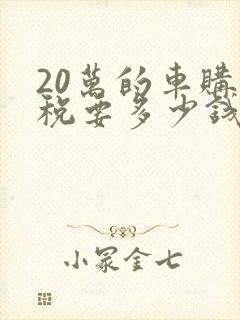 20萬的車購
税要多少錢
小冢金七